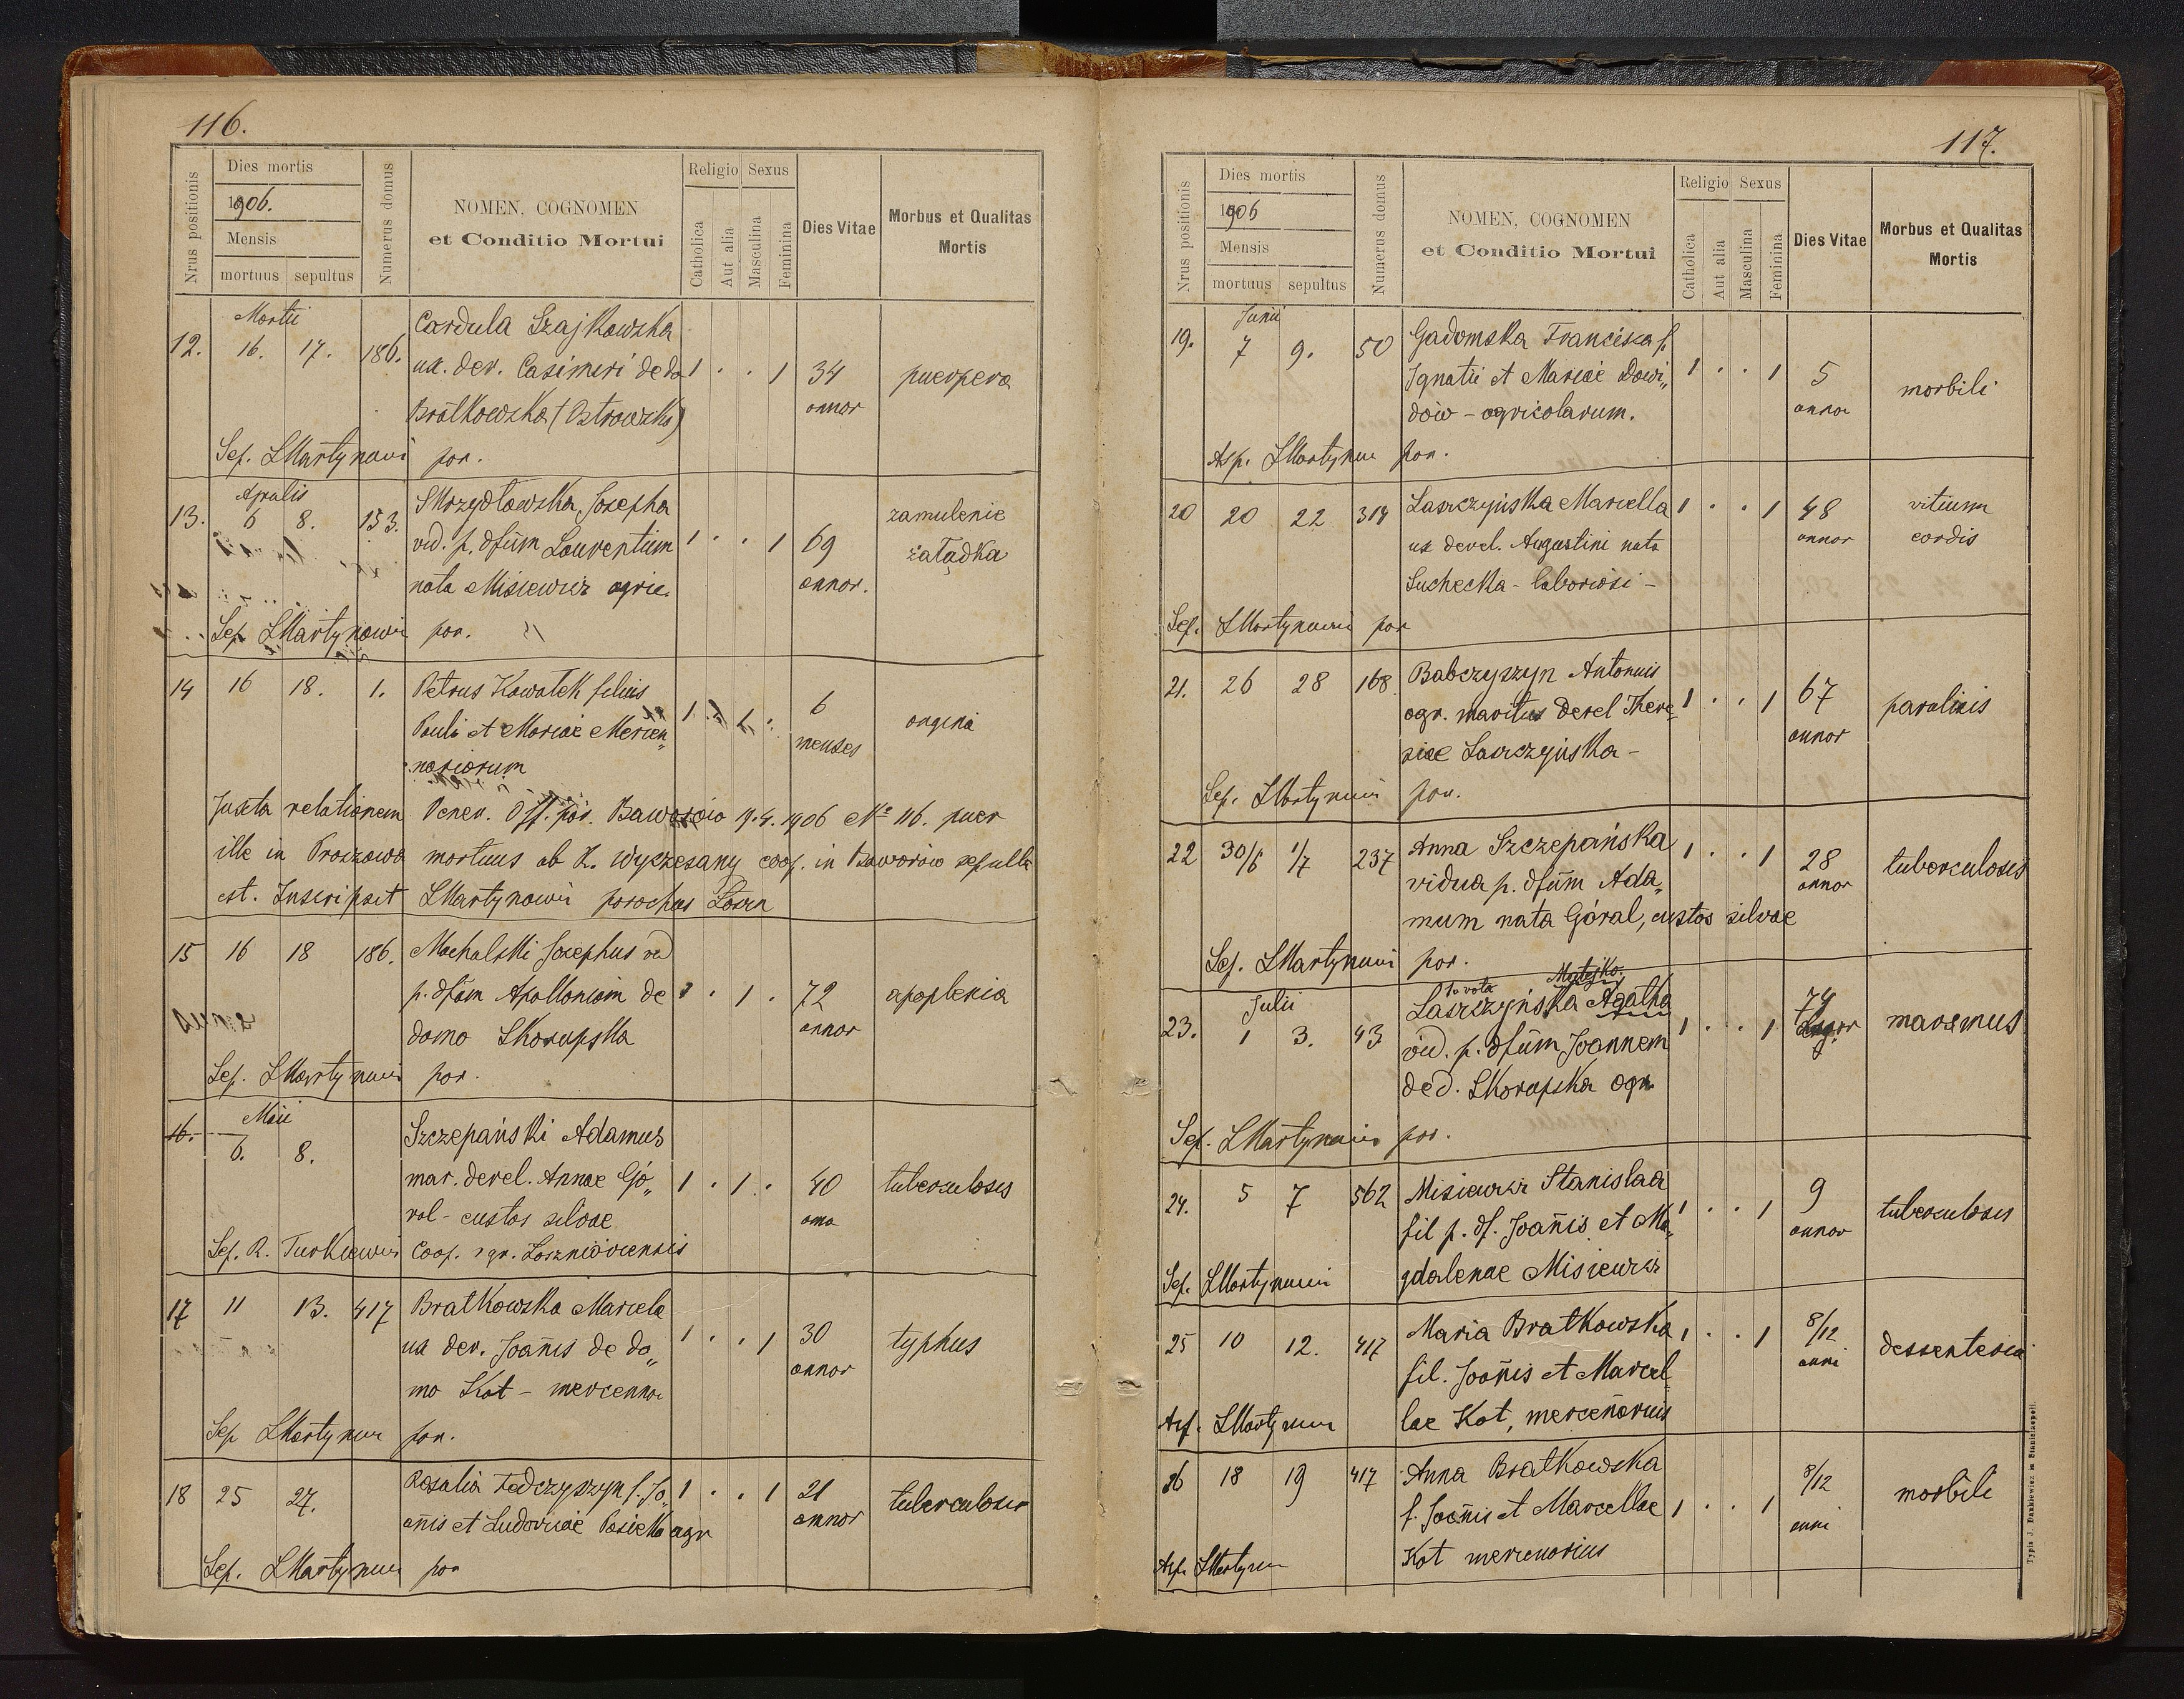 116.
Nrus positionis
Dies mortis
1906.
Mensis
mortuus sepultus
Numerus domus
NOMEN, COGNOMEN
et Conditio Mortui
Religio Sexus
Catholica
Aut alia
Masculina
Feminina
Dies Vitae
Morbus et Qualitas
Mortis
Martii
12. 16. 17. 186. Cardula Szajkowska 1 . . 1 34 puerpera
ux. der. Casimiri de do
annor
Bratkowska (Ostrowska)
Sep. LMartynowi par.
Aprilis
13. 6 8. 153. Skrzydłowska Josepha 1 . . 1 69 zamulenie
vid. p. dfūm Laurentium żałądka
nata Misiewicz agric. annor.
Sep. LMartynowi par.
14 16 18. 1. Petrus Kowalek filius 1 . 1 . 6 angina
Pauli et Mariae Mercen„
menses
nariorum
Juxta relationem Vener. Off. par. Baworów 19.4.1906 No 116. puer
ille in Proszowa mortuus ab K. Wyczesany coop. in Baworów sepulta
est. Inscripsit LMartynowi parochus
15 16 18 186. Machalski Josephus vid
p. dfām Apolloniam de 1 . 1 . 72 apoplexia
domo Skorupska annor
Sep. LMartynowi par.
Maii
16. 6. 8. Szczepański Adamus
mar. derel. Annae Gó„ 1 . 1 . 40 tuberculosis
ral - custos silvae
Sep. R. Turkiewicz Coop. Łoszniówiensis
17 11 13. 417 Bratkowska Marcela 1 . . 1 30 typhus
ux der. Joan̄is de do„
annor
mo Kot - mercennar
Sep LMartynow par.
18 25 27. Rosalia Ładczyszyn f. Jo„ 1 . . 1 21 tuberculosis
an̄is et Ludovicae Pasieka agr annor
Sep. LMartynow par
117.
Nrus positionis
Dies mortis
1906
Mensis
mortuus sepultus
Numerus domus
NOMEN, COGNOMEN
et Conditio Mortui
Religio Sexus
Catholica
Aut alia
Masculina
Feminina
Dies Vitae
Morbus et Qualitas
Mortis
Junii
19. 7 9. 50 Gadomska Francisca f. 1 . . 1 5 morbili
Ignatii et Mariae Dawi„
dów - agricolarum.
Asp. LMartynow par.
20 20 22 314 Laszczyńska Marcella 1 . . 1 48 vitium
ux derel. Augustini nata annor cordis
Suchecka - laboriosi -
Sep. LMartynowi par
21. 26 28 168 Babczyszyn Antonius
agr. maritus derel There„ 1 . . 1 67 paralisis
siae Laszczyńska - annor
Sep. LMartynowi par.
22 30/6 1/7 237 Anna Szczepańska 1 . . 1 28 tuberculosis
vidua p. dfūm Ada„ annor
mum nata Góral, custos silvae
Sep. LMartynowi par.
1o vota Matejko.
Julii
23. 1 3. 43 Laszczyńska Agatha 1 . . 1 74 marasmus
vid. p. dfūm Joannem
de d. Skorupska agr.
Sep. LMartynowi par.
24. 5 7 562 Misiewicz Stanislaa 1 . . 1 9 tuberculosis
fil p. df. Joan̄is et Ma„ annor
gdalenae Misiewicz
Sep. LMartynowi
25 10 12. 417 Maria Bratkowska 1 . . 1 8/12 dessenteria
fil. Joan̄is et Marcel„ anni
lae Kot, mercen̄arius
Asp. LMartynow
26 18 19 417 Anna Bratkowska 8/12 morbili
f. Joan̄is et Marcellae 1 . . 1 anni
Kot mercenarius
Asp. LMartynow
Typis J. Dankiewicz in Stanislaopoli.